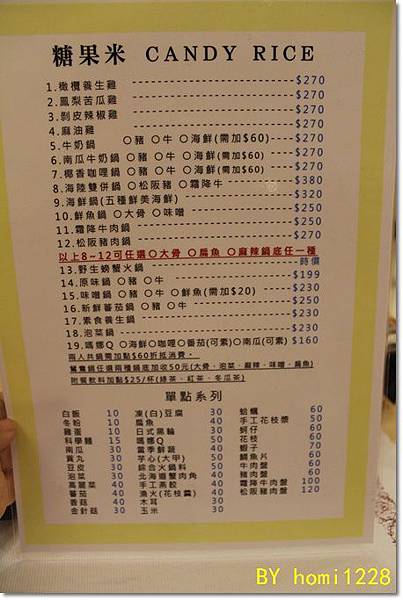 糖果米 CANDY RICE
1.橄欖養生雞 $270
2.鳳梨苦瓜雞 $270
3.剝皮辣椒雞 $270
4.麻油雞 $270
5.牛奶鍋 〇豬 〇牛 〇海鮮(需加$60) $270
6.南瓜牛奶鍋 〇豬 〇牛 〇海鮮(需加$60) $270
7.椰香咖哩鍋 〇豬 〇牛 〇海鮮(需加$60) $270
8.海陸雙併鍋 〇松阪豬 〇霜降牛 $380
9.海鮮鍋(五種鮮美海鮮) $320
10.鮮魚鍋 〇大骨 〇味噌 $250
11.霜降牛肉鍋 $250
12.松阪豬肉鍋 $270
以上8~12可任選〇大骨 〇扁魚 〇麻辣鍋底任一種
13.野生螃蟹火鍋 時價
14.原味鍋 〇豬 〇牛 $199
15.味噌鍋 〇豬 〇牛 〇鮮魚(需加$20) $230
16.新鮮蕃茄鍋 〇豬 〇牛 $230
17.素食養生鍋 $230
18.泡菜鍋 $230
19.嗎哪Q 〇海鮮〇咖哩〇番茄(可素)〇南瓜(可素) $160
兩人共鍋需加點$60折抵消費。
鴛鴦鍋任選兩種鍋底加收50元(大骨、泡菜、麻辣、味噌、扁魚)
附餐飲料加點$25/杯(綠茶、紅茶、冬瓜茶)
單點系列
白飯 10 凍(白)豆腐 30 蛤蠣 60
冬粉 10 扁魚 40 手工花枝漿 50
雞蛋 10 日式黑輪 30 蚵仔 60
科學麵 15 嗎哪Q 50 花枝 60
南瓜 30 當季鮮蔬 40 蝦子 70
貢丸 30 芋心(大甲) 50 鯛魚片 60
豆皮 30 綜合火鍋料 50 牛肉盤 60
泡菜 30 北海道蟹肉角 40 豬肉盤 60
高麗菜 40 手工蒸餃 40 霜降牛肉盤 100
蕃茄 40 漁火(花枝薑) 40 松阪豬肉盤 120
香菇 40 木耳 30
金針菇 30 玉米 30
BY homi1228